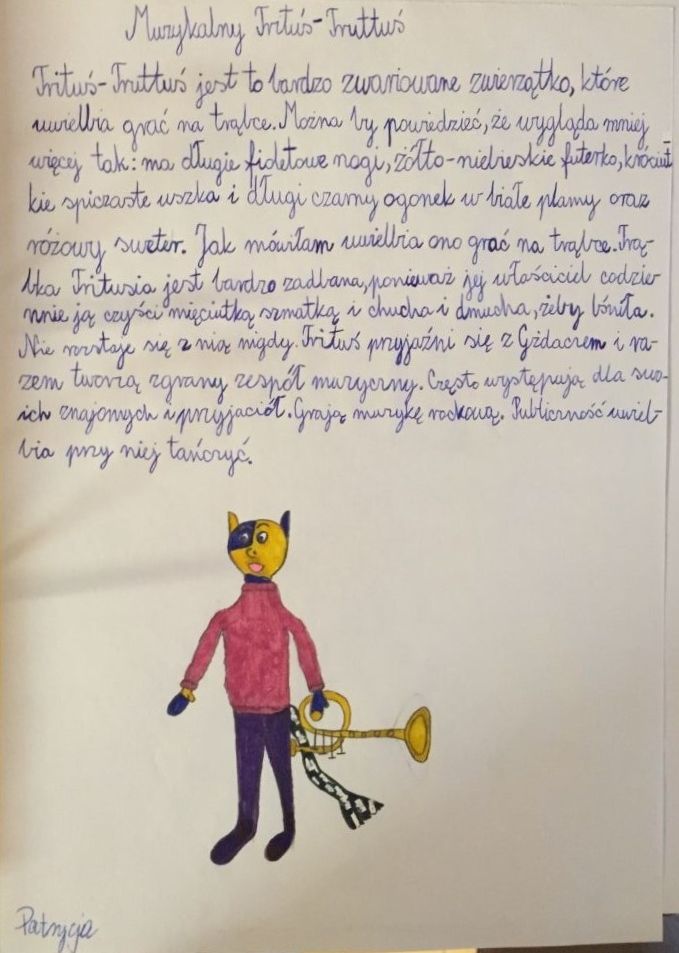 Muzykalny Trituś-Truttuś
Trituś-Truttuś jest to bardzo zwariowane zwierzątko, które
uwielbia grać na trąbce. Można by powiedzieć, że wygląda mniej
więcej tak: ma długie fioletowe nogi, żółto-niebieskie futerko, króciut
kie spiczaste uszka i długi czarny ogonek w białe plamy oraz
różowy sweter. Jak mówiłam uwielbia ono grać na trąbce. Trą-
bka Tritusia jest bardzo zadbana, ponieważ jej właściciel codzie-
nnie ją czyści mięciutką szmatką i chucha i dmucha, żeby lśniła.
Nie rozstaje się z nią nigdy. Trituś przyjaźni się z Gżdaczem i ra-
zem tworzą zgrany zespół muzyczny. Często występują dla swo-
ich znajomych i przyjaciół. Grają muzykę rockową. Publiczność uwiel-
bia przy niej tańczyć.
Patrycja